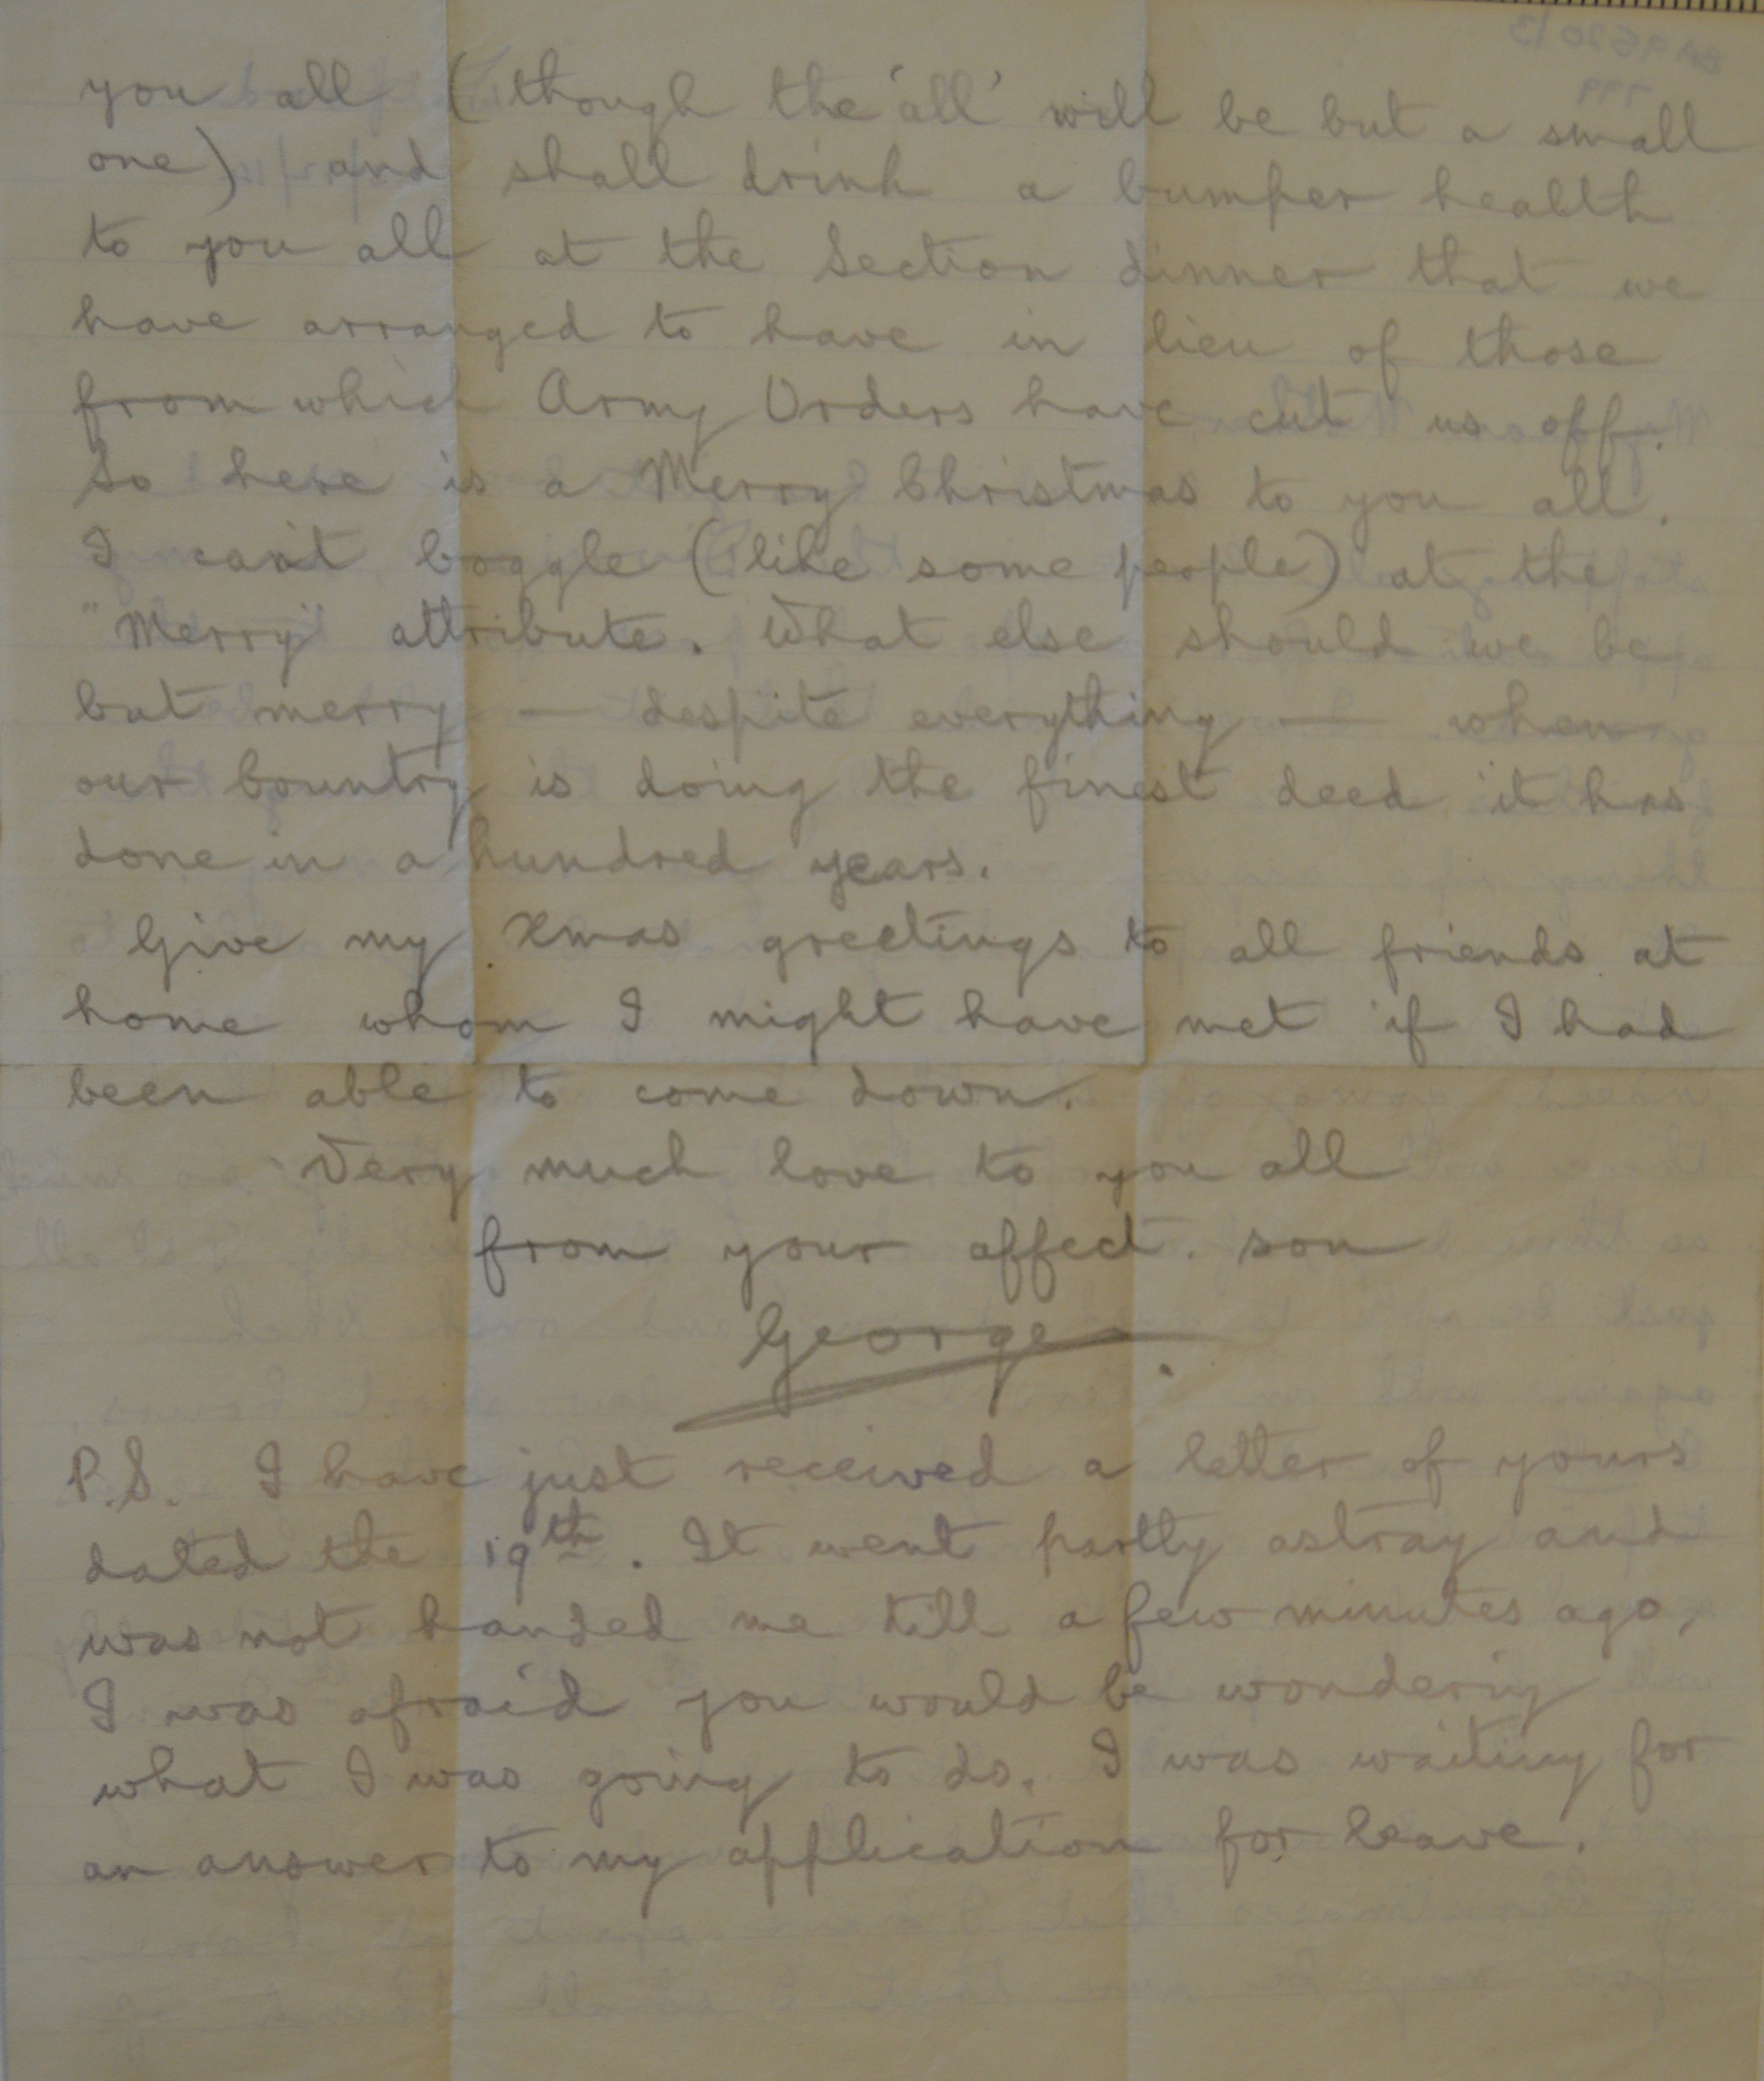 you all (though the 'all' will be but a small
one) and shall drink a bumper health
to you all at the Section dinner that we
have arranged to have in lieu of those
from which Army Orders have cut us off.
So here is a Merry Christmas to you all.
I can't boggle (like some people) at the
"Merry" attribute. What else should we be
but merry — despite everything — when
our Country is doing the finest deed it has
done in a hundred years.
Give my Xmas greetings to all friends at
home whom I might have met if I had
been able to come down.
Very much love to you all
from your affect. son
George.
P.S. I have just received a letter of yours
dated the 19th. It went partly astray and
was not handed me till a few minutes ago.
I was afraid you would be wondering
what I was going to do. I was waiting for
an answer to my application for leave.